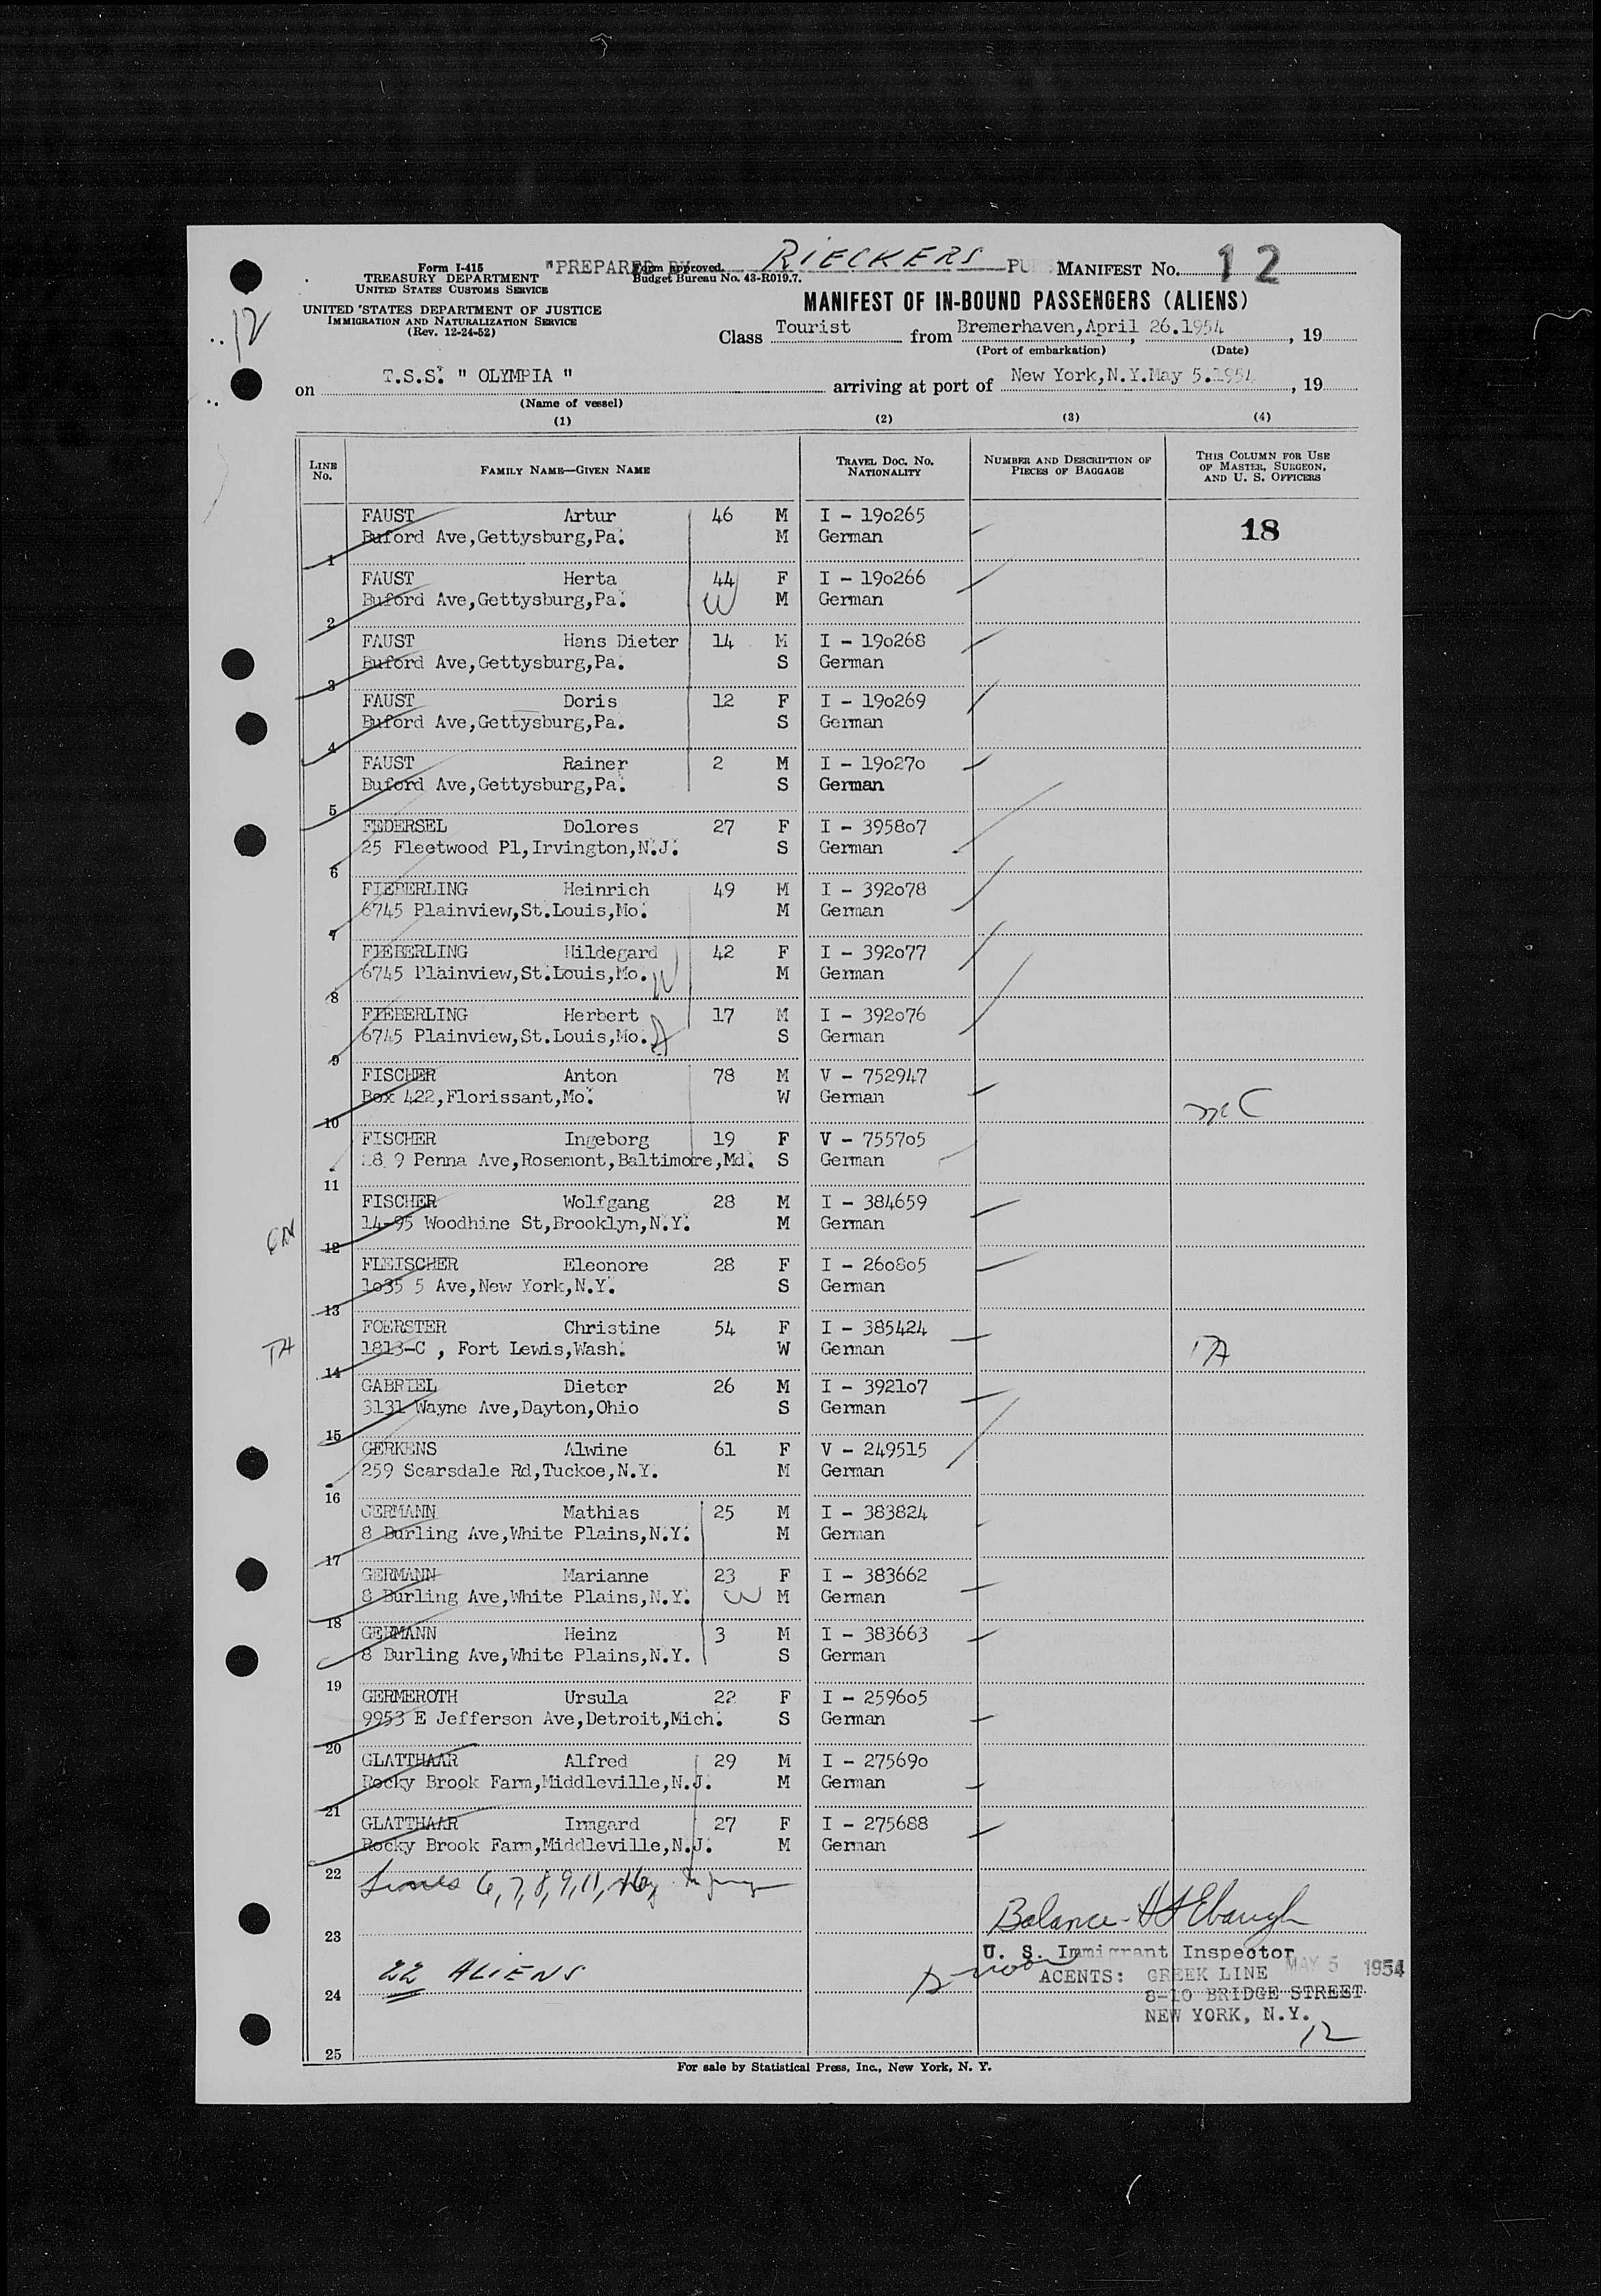 Form I-415
TREASURY DEPARTMENT
UNITED STATES CUSTOMS SERVICE
UNITED STATES DEPARTMENT OF JUSTICE
IMMIGRATION AND NATURALIZATION SERVICE
(Rev. 12-24-52)
"PREPARED BY RIECKERS PURSER
Form approved.
Budget Bureau No. 43-R019.7.
MANIFEST No. 12
12
MANIFEST OF IN-BOUND PASSENGERS (ALIENS)
Class Tourist from Bremerhaven, April 26.1954, 19
(Port of embarkation) (Date)
on T.S.S. " OLYMPIA " arriving at port of New York,N.Y.May 5.1954, 19
(Name of vessel)
(1) (2) (3) (4)
LINE No. FAMILY NAME—GIVEN NAME TRAVEL DOC. NO. NATIONALITY NUMBER AND DESCRIPTION OF PIECES OF BAGGAGE THIS COLUMN FOR USE OF MASTER, SURGEON, AND U. S. OFFICERS
FAUST Artur 46 M I - 190265
Buford Ave,Gettysburg,Pa. M German 18
1
FAUST Herta 44 F I - 190266
Buford Ave,Gettysburg,Pa. W M German
2
FAUST Hans Dieter 14 M I - 190268
Buford Ave,Gettysburg,Pa. S German
3
FAUST Doris 12 F I - 190269
Buford Ave,Gettysburg,Pa. S German
4
FAUST Rainer 2 M I - 190270
Buford Ave,Gettysburg,Pa. S German
5
FEDERSEL Dolores 27 F I - 395807
25 Fleetwood Pl,Irvington,N.J. S German
6
FIEBERLING Heinrich 49 M I - 392078
6745 Plainview,St.Louis,Mo. M German
7
FIEBERLING Hildegard 42 F I - 392077
6745 Plainview,St.Louis,Mo. W M German
8
FIEBERLING Herbert 17 M I - 392076
6745 Plainview,St.Louis,Mo. S German
9
FISCHER Anton 78 M V - 752947
Box 422,Florissant,Mo. W German
10
FISCHER Ingeborg 19 F V - 755705
Penna Ave,Rosemont,Baltimore,Md. S German
11
FISCHER Wolfgang 28 M I - 384659
14-95 Woodhine St,Brooklyn,N.Y. M German
12
FLEISCHER Eleonore 28 F I - 260805
1035 5 Ave,New York,N.Y. S German
13
FOERSTER Christine 54 F I - 385424
TA 1813-C , Fort Lewis,Wash. W German TA
14
GABRIEL Dieter 26 M I - 392107
3131 Wayne Ave,Dayton,Ohio S German
15
GERKENS Alwine 61 F V - 249515
259 Scarsdale Rd,Tuckoe,N.Y. M German
16
GERMANN Mathias 25 M I - 383824
8 Burling Ave,White Plains,N.Y. M German
17
GERMANN Marianne 23 F I - 383662
8 Burling Ave,White Plains,N.Y. W M German
18
GERMANN Heinz 3 M I - 383663
8 Burling Ave,White Plains,N.Y. S German
19
GERMEROTH Ursula 22 F I - 259605
9953 E Jefferson Ave,Detroit,Mich. S German
20
GLATTHAAR Alfred 29 M I - 275690
Rocky Brook Farm,Middleville,N.J. M German
21
GLATTHAAR Irmgard 27 F I - 275688
Rocky Brook Farm,Middleville,N.J. M German
22
Lines 6,7,8,9,11,16,
Balance - Ebaugh
23
U. S. Immigrant Inspector
MAY 5 1954
22 ALIENS
AGENTS: GREEK LINE
24
8-10 BRIDGE STREET
NEW YORK, N.Y.
12
25
For sale by Statistical Press, Inc., New York, N. Y.